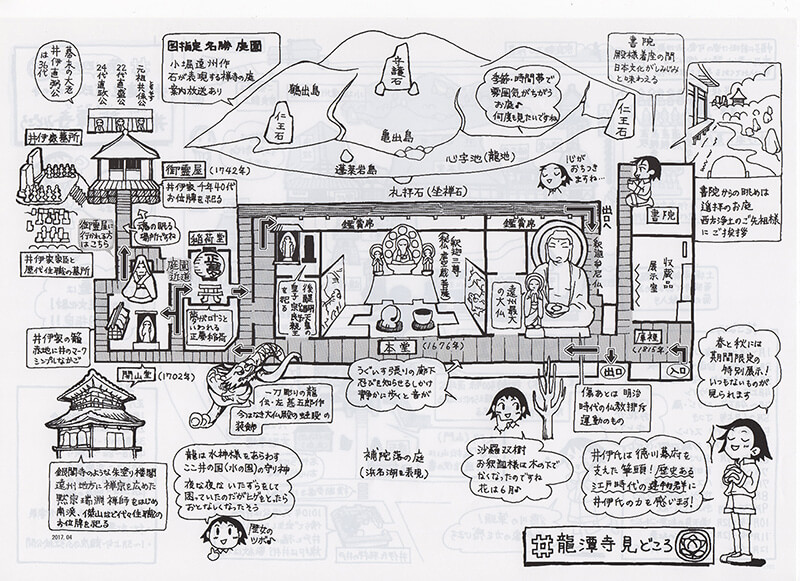 幕末の大老
井伊直政公
は36代
24代直政公
22代直盛公
元祖共保公
国指定名勝 庭園
小堀遠州作
石が表現する禅寺の庭
案内放送あり
守護石
鶴出島
仁王石
亀出島
蓬莱岩島
心字池(龍池)
礼拝石(坐禅石)
季節・時間帯で
雰囲気がちがう
お庭♪
何度も見たいですね
仁王石
書院
殿様着座の間
日本文化がしみじみ
と味わえる
書院からの眺めは
遥拝のお庭
西方浄土のご先祖様
にご挨拶
井伊家墓所
御霊屋(1742年)
井伊家千年40代
お仕牌を祀る
御霊屋に
行かれる方は
こちら
魂の眠る
場所ですね
井伊家家臣と
歴代住職の墓所
稲荷堂
正一位
庭園
近道
勝が口けうと
いわれる
正夢稲荷
鑑賞席
鑑賞席
後醍醐天皇の
皇子宗良親王
を祀る
釈迦三尊
(秘)虚空蔵菩薩
遠州最大
の大仏
釈迦牟尼仏
心が
おちつき
ますね…
出口へ
書院
収蔵品
展示室
庫裡
(1815年)
入口
出口
本堂(1676年)
井伊家の籠
赤地に井のマーク
シンプルなかご
開山堂(1702年)
銀閣寺のような朱塗り楼閣
遠州地方に禅宗を広めた
黙宗瑞淵禅師をはじめ
南渓、傑山など代々住職の
お位牌を祀る
一刀彫りの龍
伝・左甚五郎作
今はなき大仏殿の虹梁の
装飾
龍は水神様をあらわす
ここ井の国(水の国)の守り神
夜な夜ないたずらをして
困っていたのだがヒゲをとったら
おとなしくなったそう
歴女の
ツボ♪
うぐいす張りの廊下
忍びを知らせるしかけ
静かに歩くと音が
補陀落の庭
(浜名湖を表現)
沙羅双樹
お釈迦様は木の下で
なくなったのですね
花は6月♪
傷あとは明治
時代の仏教排斥
運動のもの
春と秋には
期間限定の
特別展示!
いつもないものが
見られます
井伊氏は徳川幕府を
支えた筆頭!歴史ある
江戸時代の建物群に
井伊氏の力を感じます!
龍潭寺見どころ
2017.04